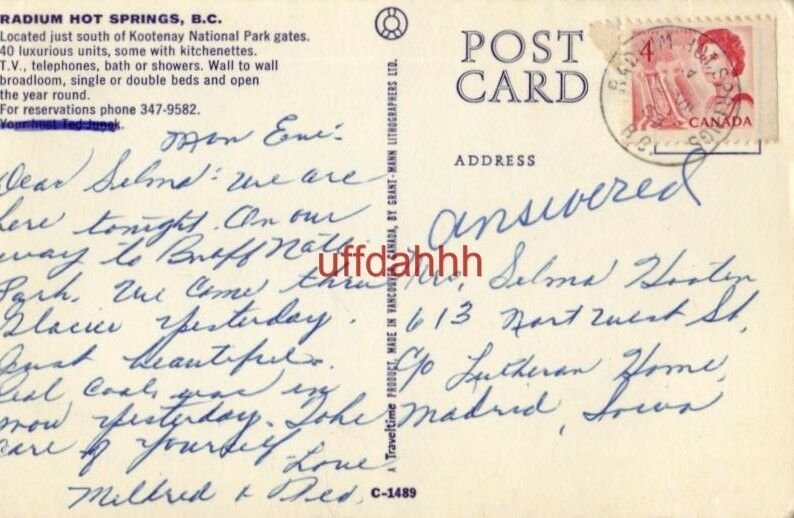 RADIUM HOT SPRINGS, B.C.
Located just south of Kootenay National Park gates.
40 luxurious units, some with kitchenettes.
T.V., telephones, bath or showers. Wall to wall
broadloom, single or double beds and open
the year round.
For reservations phone 347-9582.
Your host Ted
Mon Eve:
Dear Selma: We are
here tonight. On our
way to Banff Natl.
Park. We come thru
Glacier yesterday.
Just beautiful.
Real cool, was in
snow yesterday. Take
care of yourself
Love
Mildred & Ted.
A Traveltime PRODUCT, MADE IN VANCOUVER, CANADA, BY GRANT-MANN LITHOGRAPHERS LTD.
C-1489
POST
CARD
ADDRESS
4
CANADA
RADIUM HOT SPRINGS
B.C.
answered
Mrs. Selma Hooten
613 Northwest St,
c/o Lutheran Home,
Madrid, Iowa
uffdahhh